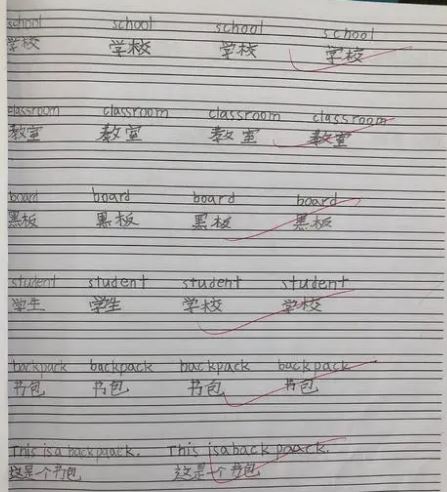 school school school school
学校 学校 学校 学校
classroom classroom classroom classroom
教室 教室 教室 教室
board board board board
黑板 黑板 黑板 黑板
student student student student
学生 学生 学校 学校
backpack backpack backpack backpack
书包 书包 书包 书包
This is a backpaack. This is a back paack.
这是个书包 这是个书包